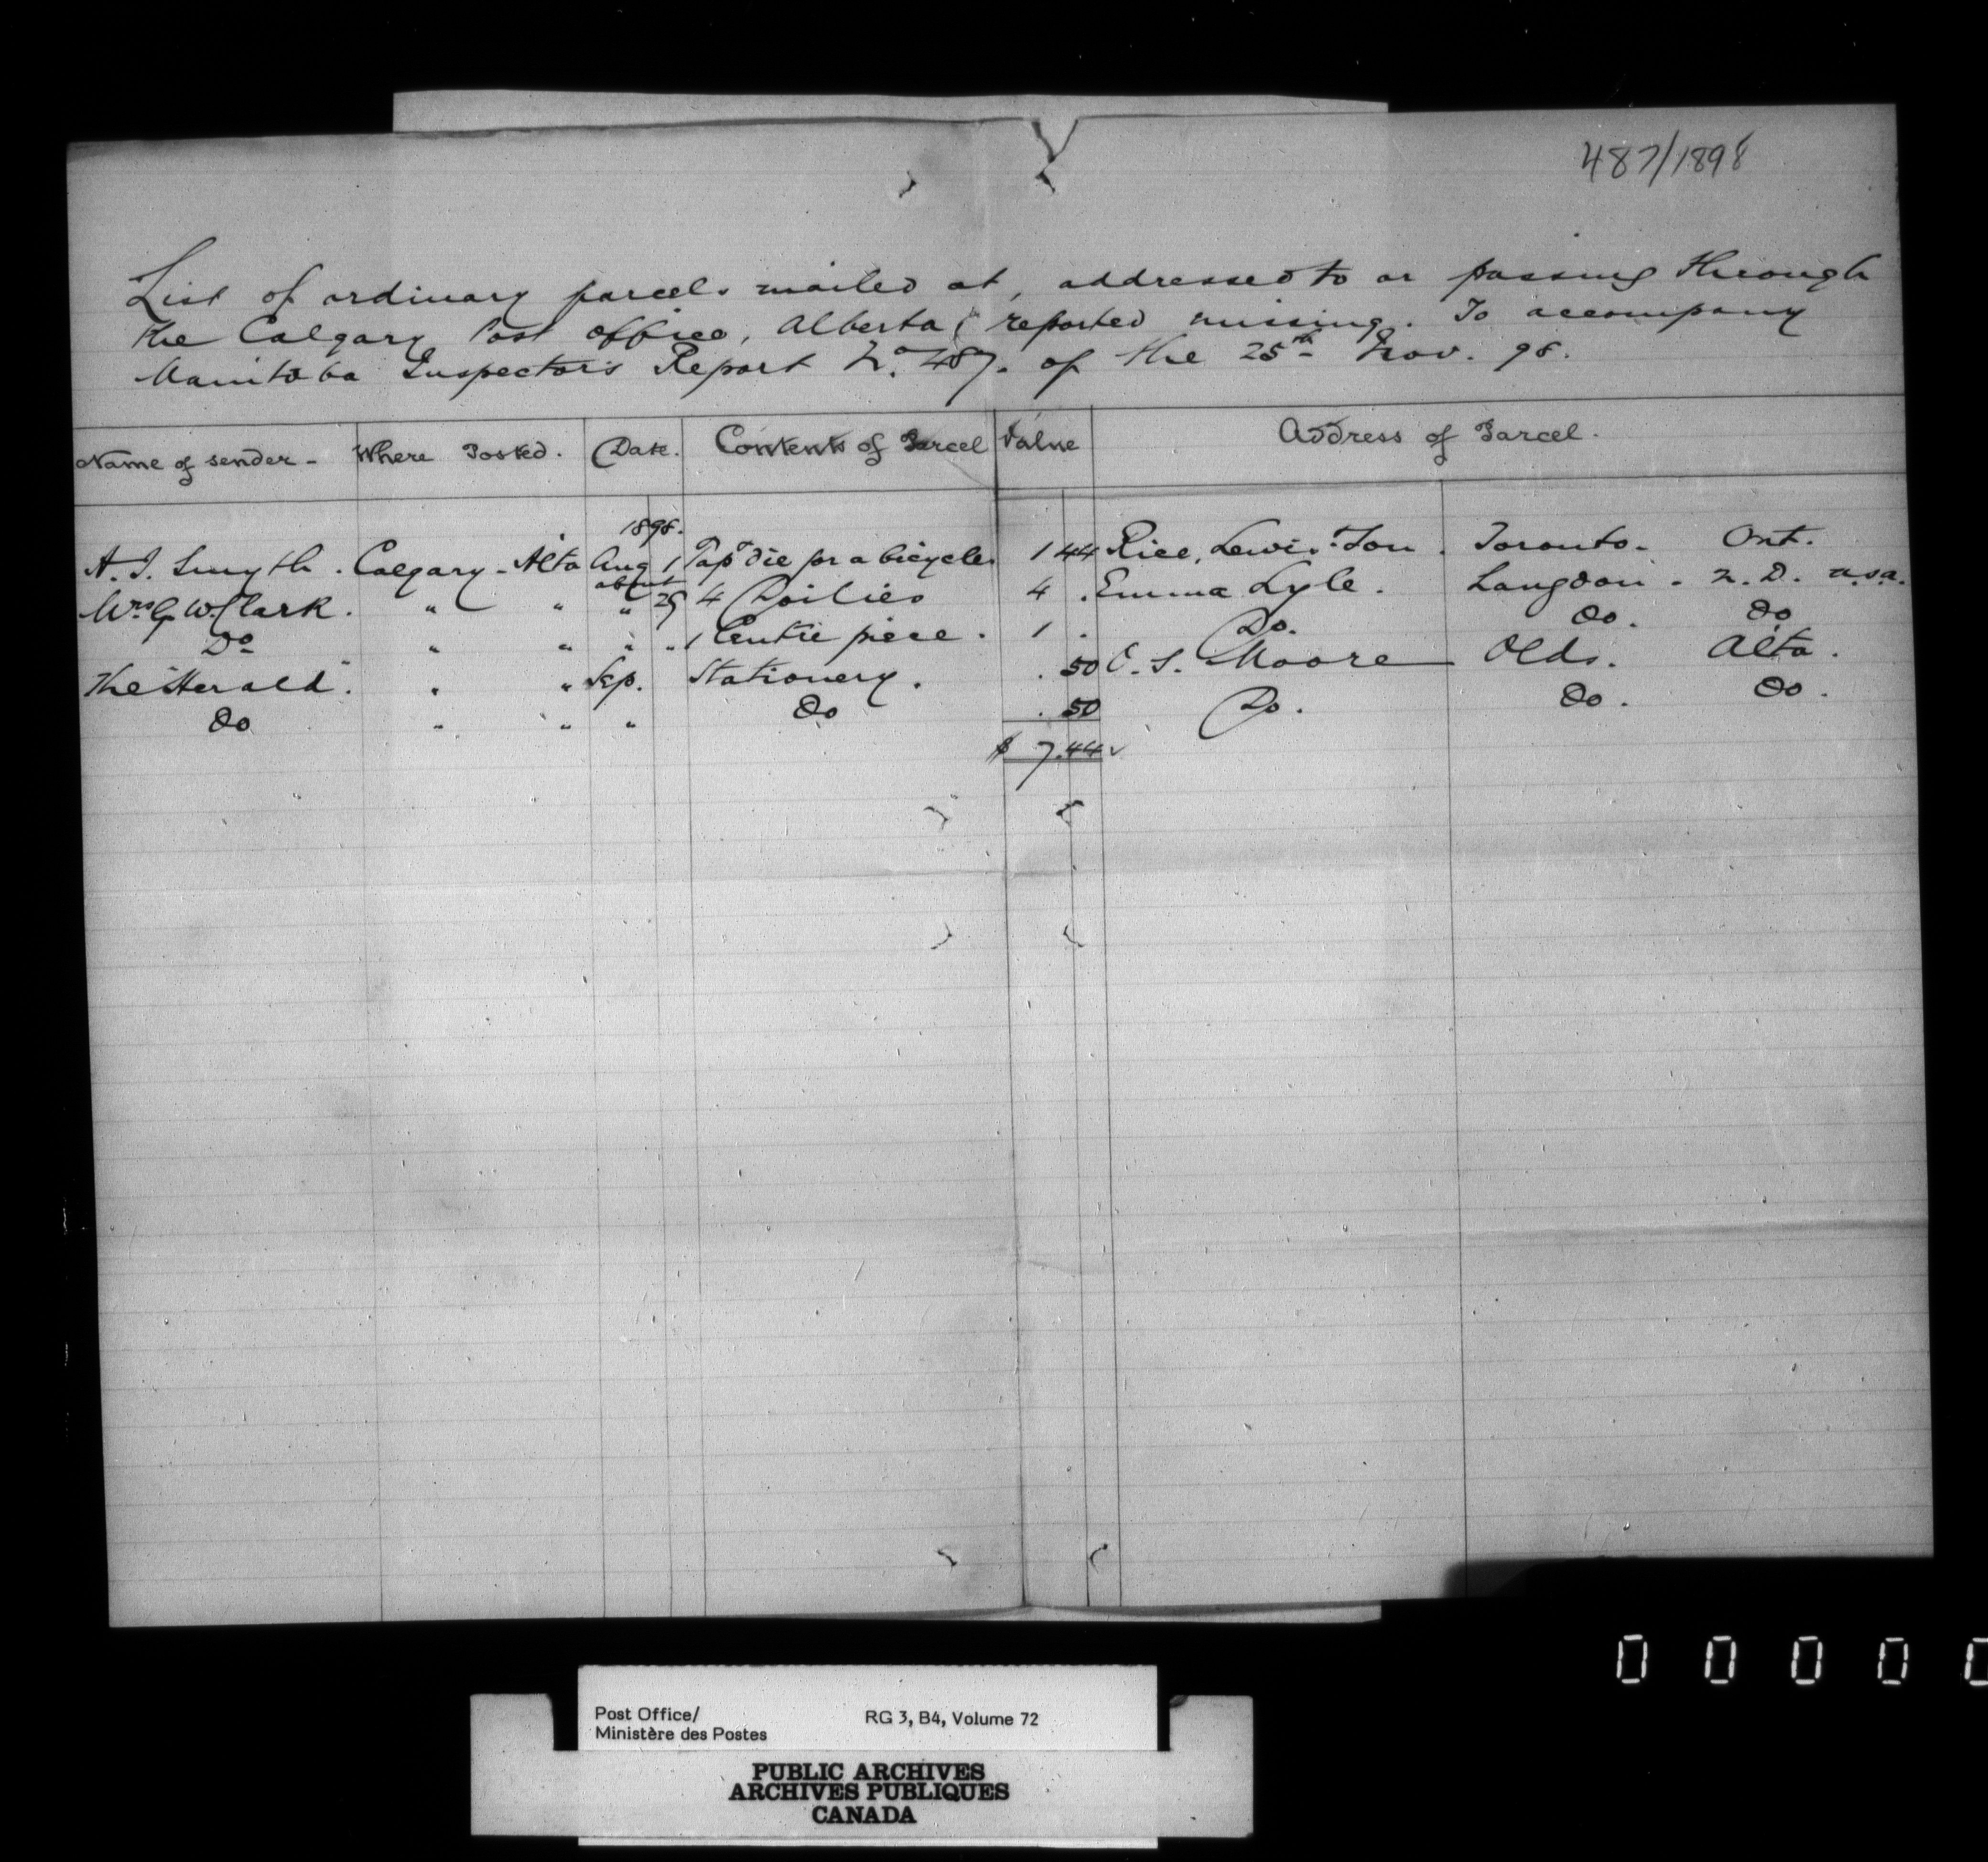 487/1898
List of ordinary parcels mailed at, addressed to or passing through
the Calgary Post Office, Alberta, reported missing. To accompany
Manitoba Inspector's Report No. 487. of the 25th Nov. 98.
Name of sender - Where Posted. Date. Contents of Parcel Value Address of Parcel.
1898.
A. J. Smyth. Calgary - Alta Aug 1 Tap & die for a bicycle. 1 44 Rice, Lewis & Son. Toronto. Ont.
about
Mrs G. W. Clark. " " " 25 4 Doilies 4 . Emma Lyle. Langdon. N. D. U.S.A.
Do " " " " 1 Centre piece. 1 . Do. Do. Do
The "Herald". " " Sep. Stationery. . 50 C. S. Moore Olds. Alta.
Do " " " Do . 50 Do. Do. Do.
$ 7.44 ✓
0 0 0 0 0
Post Office/
Ministère des Postes
RG 3, B4, Volume 72
PUBLIC ARCHIVES
ARCHIVES PUBLIQUES
CANADA